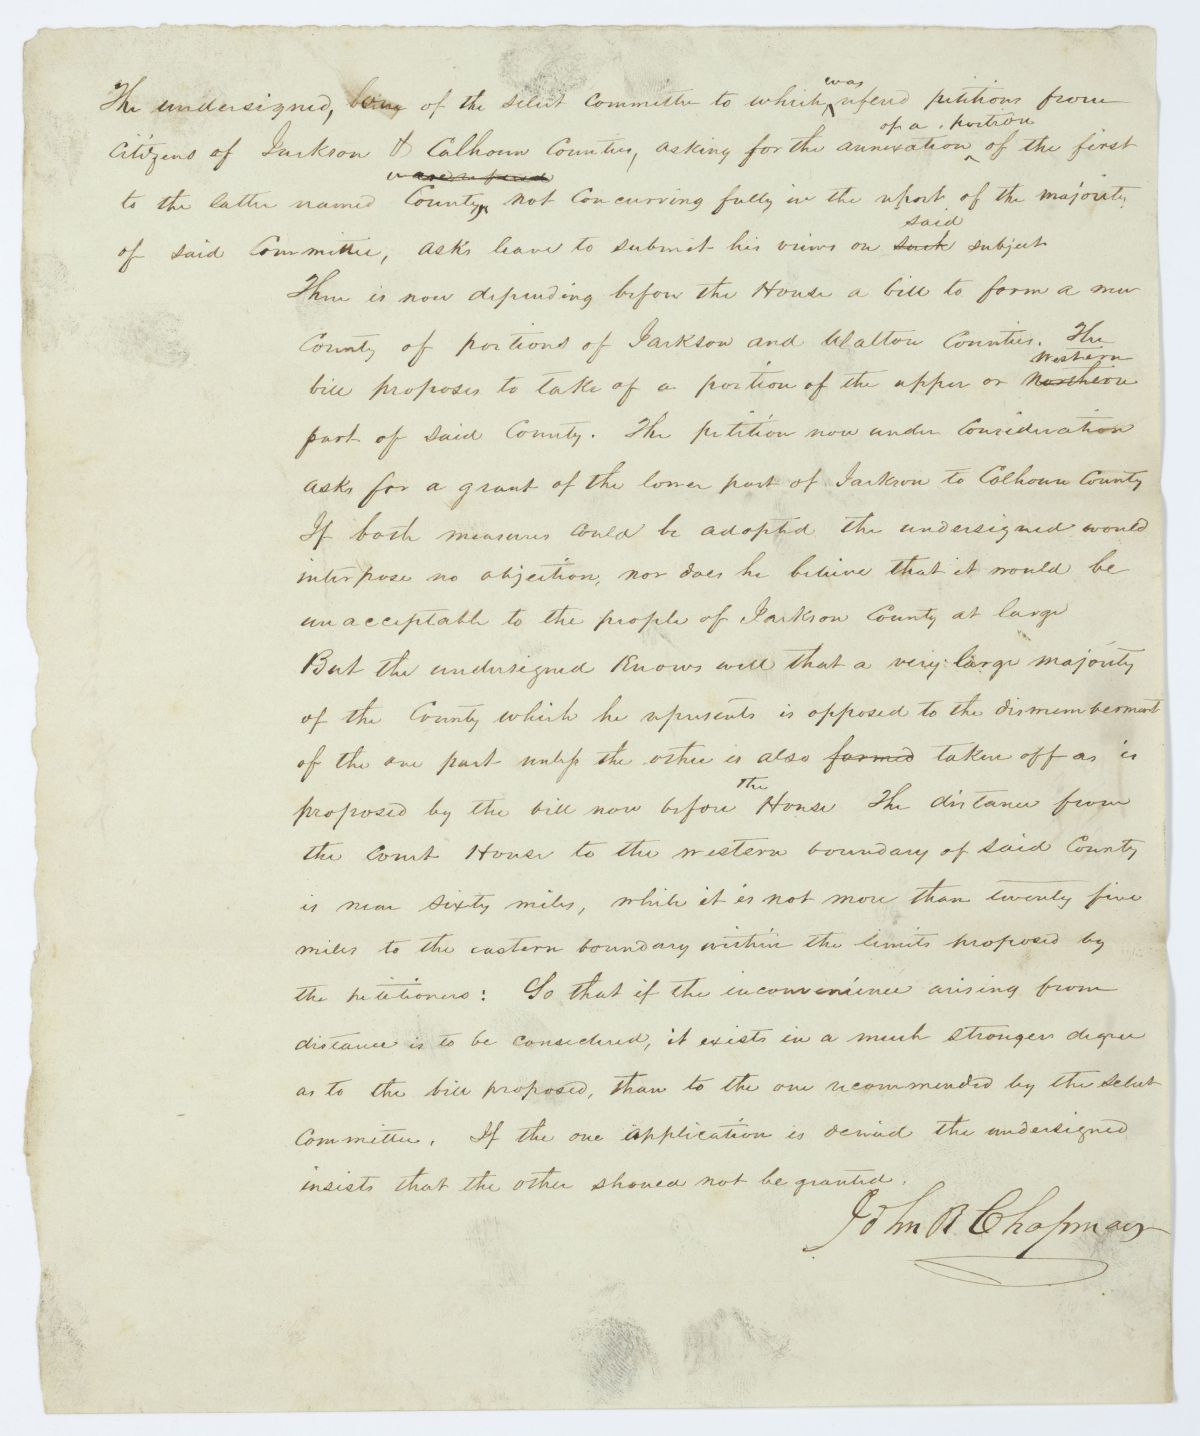 The undersigned, being of the select committee to which was refered petitions from
citizens of Jackson & Calhoun Counties, asking for the annexation of a portion of the first
to the latter named County, were refered not concurring fully in the report of the majority
of said Committee, asks leave to submit his views on such said subject
There is now depending before the House a bill to form a new
County of portions of Jackson and Walton Counties. The
bill proposes to take of a portion of the upper or northern western
part of said County. The petition now under consideration
asks for a grant of the lower part of Jackson to Calhoun County
If both measures could be adopted the undersigned would
interpose no objection, nor does he believe that it would be
unacceptable to the people of Jackson County at large
But the undersigned Knows well that a very large majority
of the County which he represents is opposed to the dismemberment
of the one part unless the other is also formed taken off as is
proposed by the bill now before the House The distance from
the Court House to the western boundary of said County
is near sixty miles, while it is not more than twenty five
miles to the eastern boundary within the limits proposed by
the petitioners: So that if the inconvenience arising from
distance is to be considered, it exists in a much stronger degree
as to the bill proposed, than to the one recommended by the select
Committee. If the one application is denied the undersigned
insists that the other should not be granted.
John R. Chapman